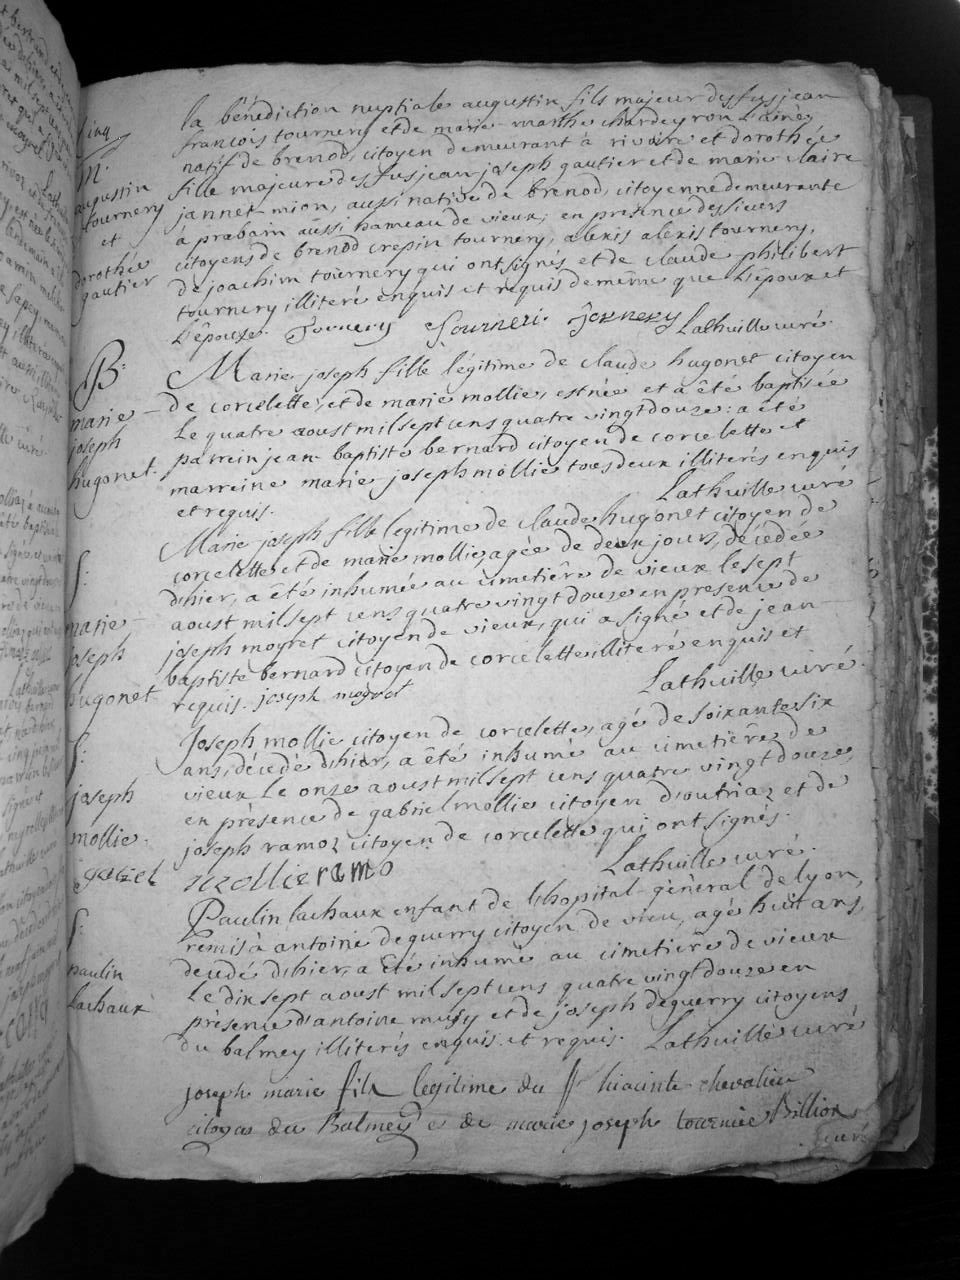 la bénédiction nuptiale augustin fils majeur des fus jean
françois tournery et de marie-marthe chardeyron l'ainé,
natif de brenod, citoyen demeurant à rivoire et dorothée
fille majeure des fus jean joseph gautier et de marie claire
jannet mion, aussi native de brenod, citoyenne demeurante
à prabam aussi hameau de vieux; en présence des sieurs
citoyens de brenod crepin tournery, alexis alexis tournery,
de joachim tournery qui ont signés et de claude philibert
tournery illiteré enquis et requis de même que l'époux et
l'épouze. Tornery Tourneri. Tornery Lathuille curé.
M.
augustin
tournery
et
dorothée
gautier
B:
marie-
joseph
hugonet.
Marie joseph fille légitime de claude hugonet citoyen
de corcelette, et de marie mollie, est née et a été baptisée
le quatre aoust mil sept cens quatre vingt douze: a été
parrein jean-baptiste bernard citoyen de corcelette et
marreine marie joseph mollie tous deux illiterés enquis
et requis. Lathuille curé
S:
marie-
joseph
hugonet
Marie joseph fille legitime de claude hugonet citoyen de
corcelette et de marie mollie, agée de deux jours, décédée
d'hier, a été inhumée au cimetière de vieux le sept
aoust mil sept cens quatre vingt douze en presence de
joseph moyret citoyen de vieux, qui a signé et de jean-
baptiste bernard citoyen de corcelette illiteré enquis et
requis. joseph moyret Lathuille curé.
S:
joseph
mollie.
Joseph mollie citoyen de corcelette, agé de soixante six
ans, décédé d'hier, a été inhumé au cimetière de
vieux le onze aoust mil sept cens quatre vingt douze,
en présence de gabriel mollie citoyen d'outriaz et de
joseph ramoz citoyen de corcelette qui ont signés.
gabriel mollie ramo Lathuille curé.
S:
paulin
lachaux
Paulin lachaux enfant de l'hopital-général de lyon,
remis à antoine deguerry citoyen de vieu, agé huit ans,
decédé d'hier, a été inhumé au cimetière de vieux
le dix sept aoust mil sept cens quatre vingt douze en
présence d'antoine musy et de joseph deguerry citoyens
du balmey illiterés enquis et requis. Lathuille curé
joseph marie fils legitime du Sr hiacinte chevalier
citoyen du Balmey et de marie joseph tournier Billion
curé